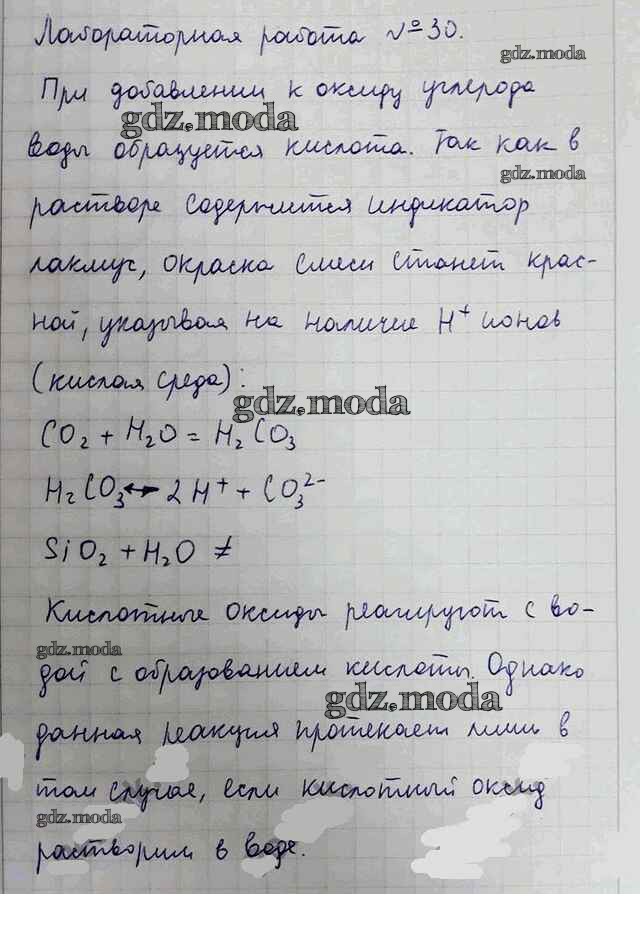 Лабораторная работа №30.
gdz.moda
При добавлении к оксиду углерода
gdz.moda
воды образуется кислота. Так как в
gdz.moda
растворе содержится индикатор
лакмус, окраска смеси станет крас-
ной, указывая на наличие H⁺ ионов
(кислая среда):
gdz.moda
CO₂ + H₂O = H₂CO₃
H₂CO₃ ↔ 2H⁺ + CO₃²⁻
SiO₂ + H₂O ≠
Кислотные оксиды реагируют с во-
gdz.moda
дой с образованием кислоты. Однако
gdz.moda
данная реакция протекает лишь в
том случае, если кислотный оксид
gdz.moda
растворим в воде.